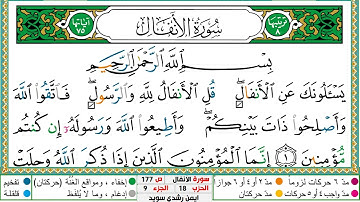 ترتيبها ٨
سورة الأنفال
آياتها ٧٥
بِسْمِ اللَّهِ الرَّحْمَٰنِ الرَّحِيمِ
يَسْـَٔلُونَكَ عَنِ الْأَنفَالِ ۖ قُلِ الْأَنفَالُ لِلَّهِ وَالرَّسُولِ ۖ فَاتَّقُوا اللَّهَ
وَأَصْلِحُوا ذَاتَ بَيْنِكُمْ ۖ وَأَطِيعُوا اللَّهَ وَرَسُولَهُ إِن كُنتُم
مُّؤْمِنِينَ ١ إِنَّمَا الْمُؤْمِنُونَ الَّذِينَ إِذَا ذُكِرَ اللَّهُ وَجِلَتْ
مدّ ٦ حركات لزوماً مدّ ٢ أو ٤ أو ٦ جوازاً
مدّ واجب ٤ أو ٥ حركات مدّ حركتان
سورة الانفال ص ١٧٧
الحزب 18 الجزء 9
ايمن رشدي سويد
إخفاء، ومواقع الغُنَّة (حركتان) تفخيم
إدغام، وما لا يُلفَظ قلقلة